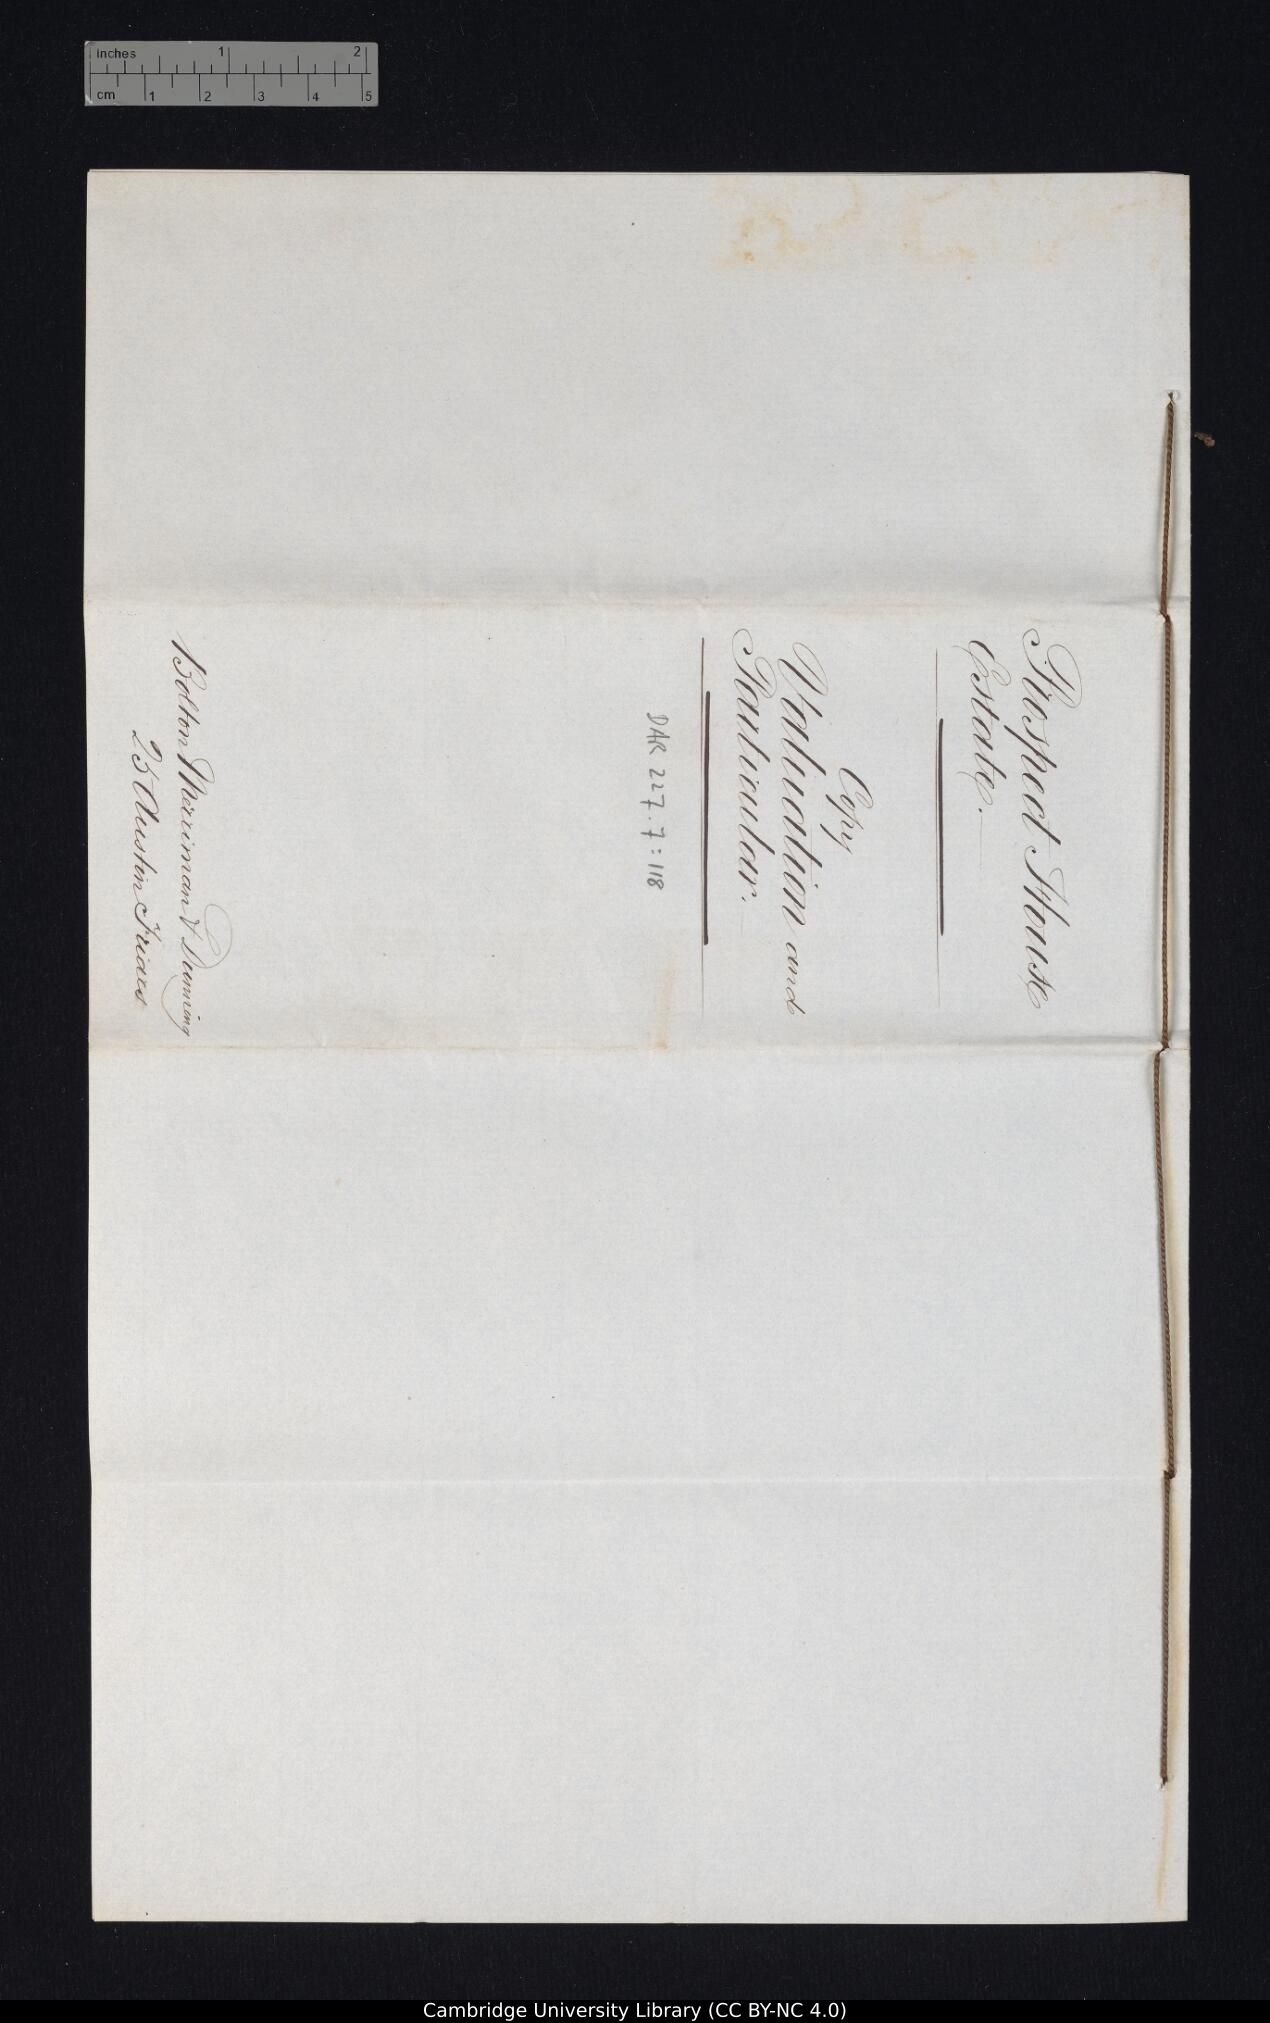 inches 1 2
cm 1 2 3 4 5
Prospect House
Estate.
Copy
Valuation and
Particular.
DAR 227.7:118
Bolton Merriman & Dunning
25 Austin Friars
Cambridge University Library (CC BY-NC 4.0)